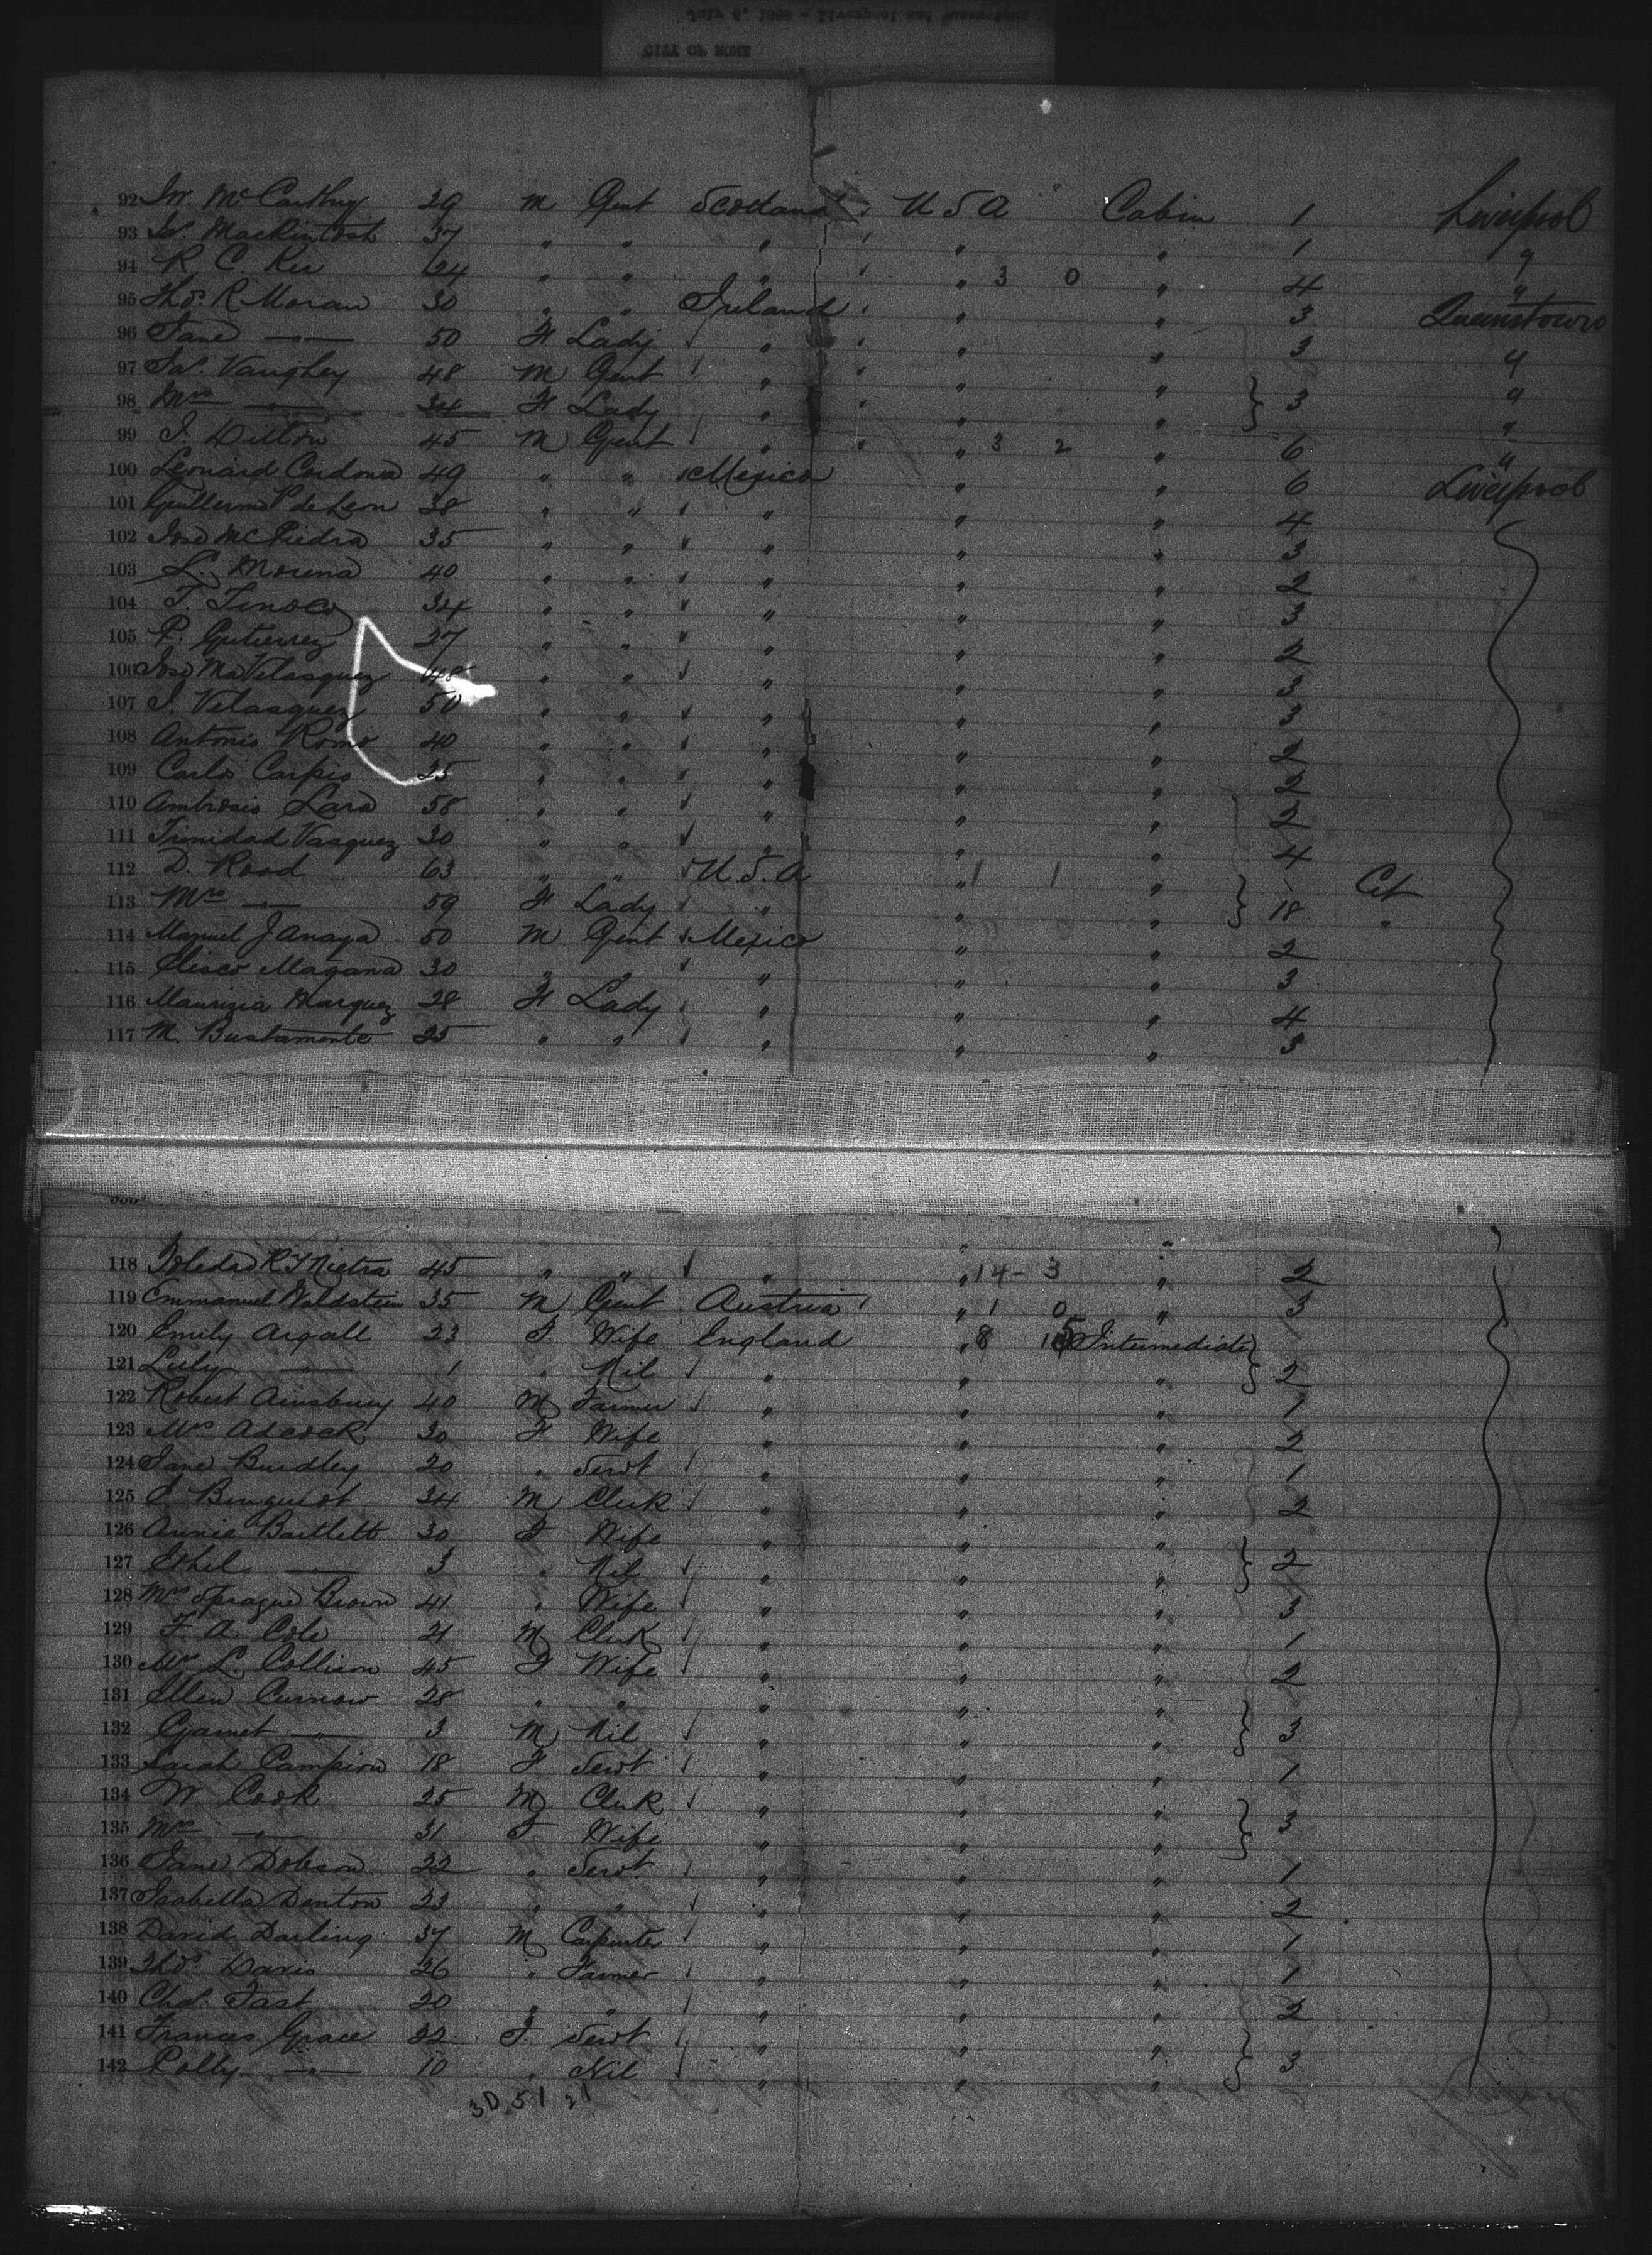 CITY OF ROME
92 Jno McCarthy 29 M Gent Scotland U S A Cabin 1 Liverpool
93 Mackintosh 37 " " " " " 1 "
94 R C. Ker 24 " " " " 3 0 " 4 "
95 Thos. R Moran 30 " " Ireland " " 3 Queenstown
96 Jane — " — 50 F Lady " " " 3 "
97 Jas. Vaughey 48 M Gent " " " 3 "
98 Mrs — " — 34 F Lady " " " "
99 J. Dillon 45 M Gent " " 3 2 " 6 "
100 Leonard Cordova 49 " " Mexico " " 6 Liverpool
101 Guillermo P de Leon 38 " " " " " 4
102 Jose M C Piedra 35 " " " " " 3
103 L. Morena 40 " " " " " 2
104 T. Tinoco 34 " " " " " 3
105 P. Gutierrez 27 " " " " " 2
106 Jose Ma Velasquez 48 " " " " " 3
107 J. Velasquez 50 " " " " " 3
108 Antonio Romo 40 " " " " " 2
109 Carlo Carpio 25 " " " " " 2
110 Ambrosio Lara 58 " " " " " 2
111 Trinidad Vasquez 30 " " " " " 4
112 D. Rood 63 " " U.S.A " 1 1 " Cit
113 Mrs — " — 59 F Lady " " " 18 "
114 Manuel J Anaya 50 M Gent Mexico " " 2
115 Elisco Magana 30 " " " " " 3
116 Maurizia Marquez 28 F Lady " " " 4
117 M. Bustamente 25 " " " " " 3
118 Toleda R Y Nietra 45 " " " " 14 - 3 " 2
119 Emmanuel Waldstein 35 M Gent Austria " 1 0 " 3
120 Emily Argall 23 F. Wife England " 8 15 Intermediate
121 Luly — " — 1 " Nil " " " 2
122 Robert Ainsbury 40 M Farmer " " " 1
123 Mrs Adcock 30 F Wife " " " 2
124 Jane Burdley 20 " Servt " " " 1
125 34 M Clerk " " " 2
126 Annie Bartlett 30 F Wife " " "
127 Ethel — " — 3 " Nil " " " 2
128 Mrs Sprague Brown 41 " Wife " " " 3
129 F. A. Cole 21 M Clerk " " " 1
130 Mrs L. Collison 45 F Wife " " " 2
131 Ellen Curnow 28 " " " " "
132 Garnet — " — 3 M Nil " " " 3
133 Sarah Campion 18 F Servt " " " 1
134 W Cook 25 M Clerk " " "
135 Mrs — " — 31 F Wife " " " 3
136 Jane Dobson 22 " Servt " " " 1
137 Isabella Denton 23 " " " " " 2
138 David Darling 37 M Carpenter " " " 1
139 Thos Davis 26 " Farmer " " " 1
140 Chas. Fast 20 " " " " " 2
141 Frances Grace 32 F. Servt " " "
142 Polly — " — 10 " Nil " " " 3
30 51 21